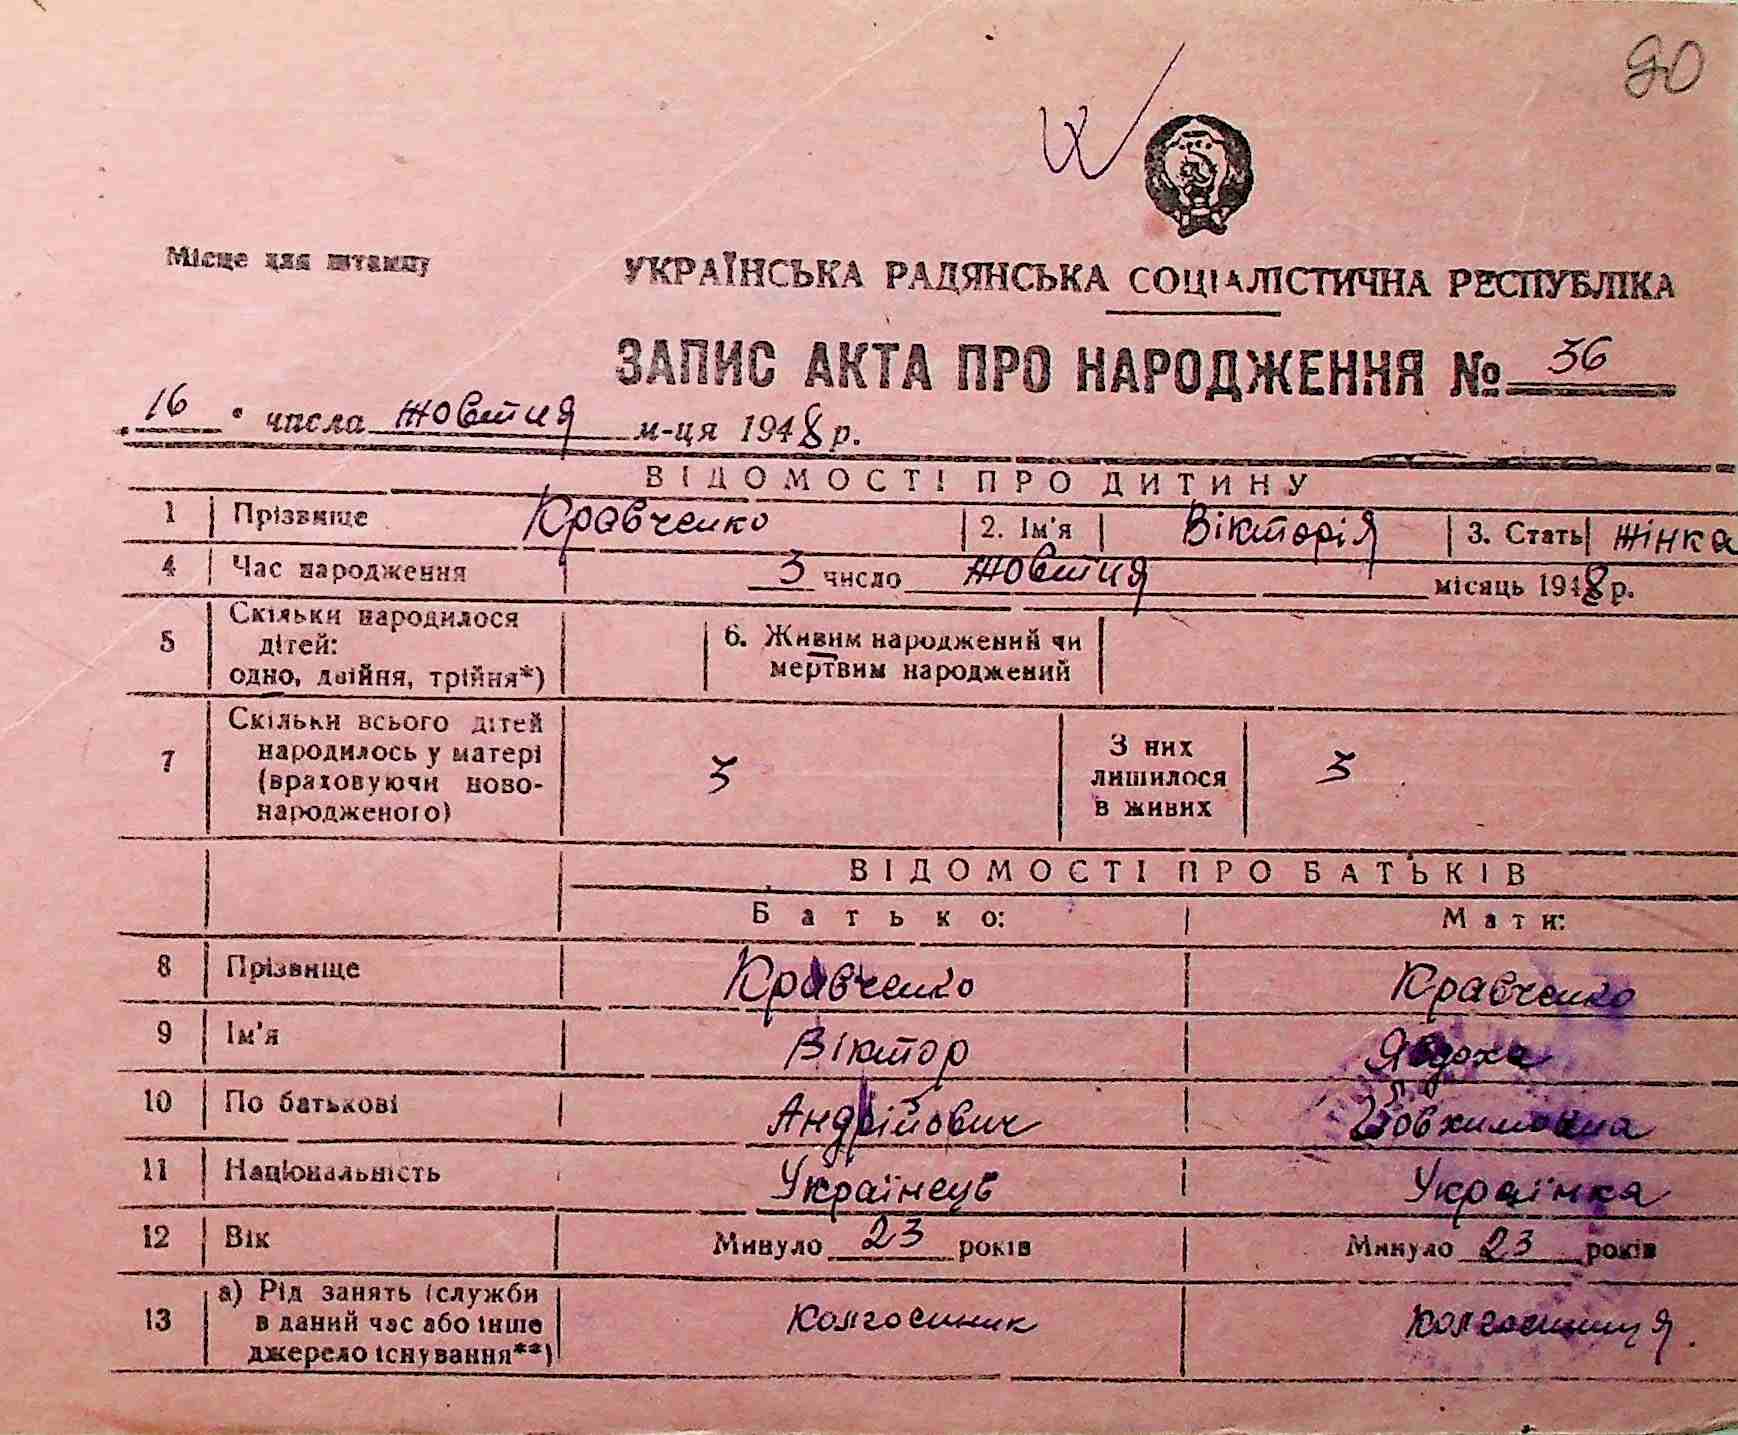 90
Місце для штампу
УКРАЇНСЬКА РАДЯНСЬКА СОЦІАЛІСТИЧНА РЕСПУБЛІКА
ЗАПИС АКТА ПРО НАРОДЖЕННЯ № 36
16 числа жовтня м-ця 1948 р.
ВІДОМОСТІ ПРО ДИТИНУ
1 Прізвище Кравченко 2. Ім'я Вікторія 3. Стать жінка
4 Час народження 3 число жовтня місяць 1948 р.
5 Скільки народилося дітей: одно, двійня, трійня*) 6. Живим народжений чи мертвим народжений
7 Скільки всього дітей народилось у матері (враховуючи ново-народженого) 3 З них лишилося в живих 3
ВІДОМОСТІ ПРО БАТЬКІВ
Батько: Мати:
8 Прізвище Кравченко Кравченко
9 Ім'я Віктор Явдоха
10 По батькові Андрійович
11 Національність Українець Українка
12 Вік Минуло 23 років Минуло 23 років
13 а) Рід занять (служби в даний час або інше джерело існування**) Колгоспник Колгоспниця.